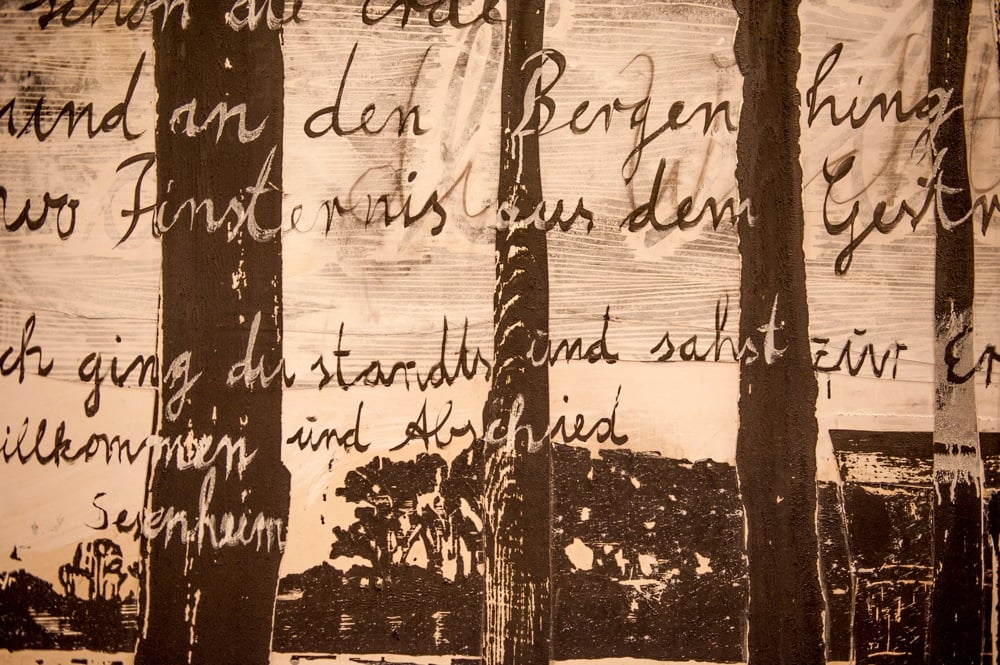 schon die Erde
und an den Bergen hing
wo Finsternis aus dem Gestr
ch ging du standts und sahst zur Er
illkommen und Abschied
Sesenheim